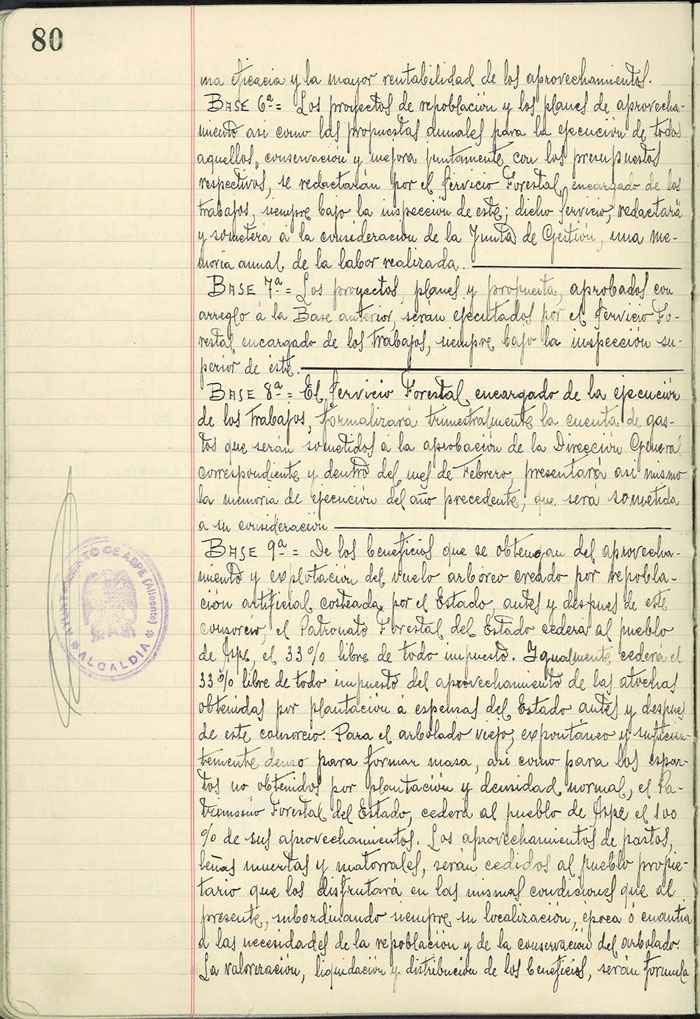 80
ma eficacia y la mayor rentabilidad de los aprovechamientos.
BASE 6ª = Los proyectos de repoblación y los planes de aprovecha-
miento asi como las propuestas anuales para la ejecución de todos
aquellos, conservación y mejora juntamente con los presupuestos
respectivos, se redactarán por el Servicio Forestal encargado de los
trabajos, siempre bajo la inspeccion de este; dicho servicio, redactará
y someterá a la consideración de la Junta de Gestión, una me-
moria anual de la labor realizada.
BASE 7ª = Los proyectos, planes y propuesta, aprobados con
arreglo á la Base anterior, serán ejecutados por el Servicio Fo-
restal encargado de los trabajos, siempre bajo la inspección su-
perior de éste.
BASE 8ª = El Servicio Forestal encargado de la ejecución
de los trabajos, formalizará trimestralmente la cuenta de gas-
tos que serán sometidos á la aprobación de la Dirección General
correspondiente y dentro del mes de Febrero, presentará asi mismo
la memoria de ejecución del año precedente, que será sometida
a su consideración
BASE 9ª = De los beneficios que se obtengan del aprovecha-
miento y explotación del vuelo arbóreo creado por repobla-
ción artificial costeada por el Estado, antes y despues de este
consorcio, el Patronato Forestal del Estado cederá al pueblo
de Aspe, el 33% libre de todo impuesto. Igualmente cederá el
33% libre de todo impuesto del aprovechamiento de las atochas
obtenidas por plantación á espensas del Estado antes y despues
de este consorcio. Para el arbolado viejo, expontáneo y suficien-
temente denso para formar masa, asi como para los espar-
tos no obtenidos por plantación y densidad normal, el Pa-
trimonio Forestal del Estado, cederá al pueblo de Aspe el 100
% de sus aprovechamientos. Los aprovechamientos de pastos,
leñas muertas y matorrales, serán cedidos al pueblo propie-
tario que los disfrutará en las mismas condiciones que al
presente, subordinando siempre su localización, época ó cuantia
á las necesidades de la repoblación y de la conservación del arbolado
La valorización, liquidación y distribución de los beneficios, serán formula
AYUNTAMIENTO DE ASPE (Alicante)
ALCALDIA